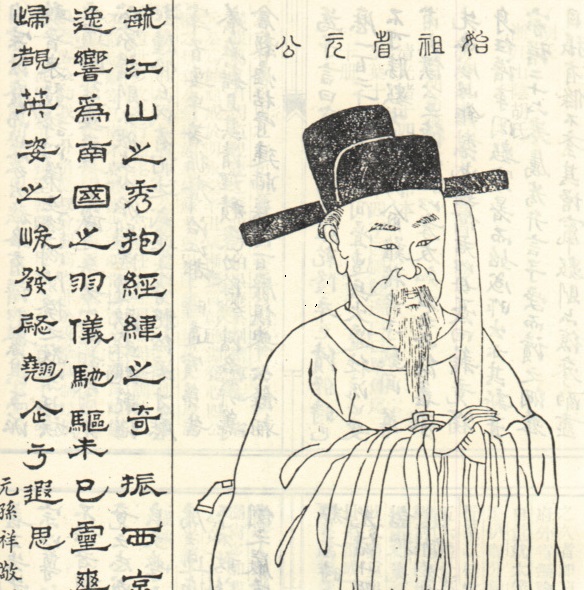 始祖省元公
毓江山之秀抱經緯之奇振西京
逸響爲南國之羽儀馳驅未已靈爽
歸覩英姿之峻發翹企亏遐思
元孫祥敬